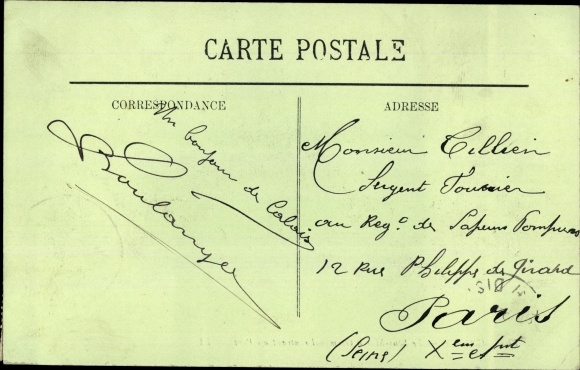 CARTE POSTALE
CORRESPONDANCE
ADRESSE
Un bonjour de Calais
Boulanger
Monsieur Tillien
Sergent Fourrier
au Reg.t de Sapeurs Pompiers
12 Rue Philippe de Girard
Paris
(Seine) Xeme